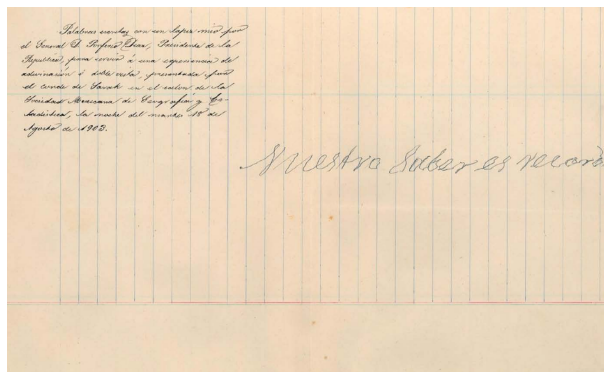 Palabras escritas con un lapiz mio por
el General D. Porfirio Diaz, Presidente de la
Republica, para servir á una experiencia de
adivinación ó doble vista, presentada por
el conde de Sarak en el salon de la
Sociedad Mexicana de Geografía y Es-
tadistica, la noche del martes 18 de
Agosto de 1903.
Nuestro Saber es record